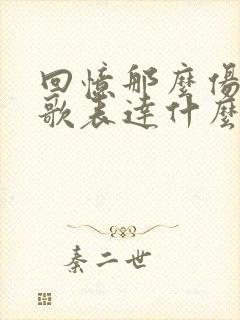 回憶那麼傷
歌表達什麼
秦二世